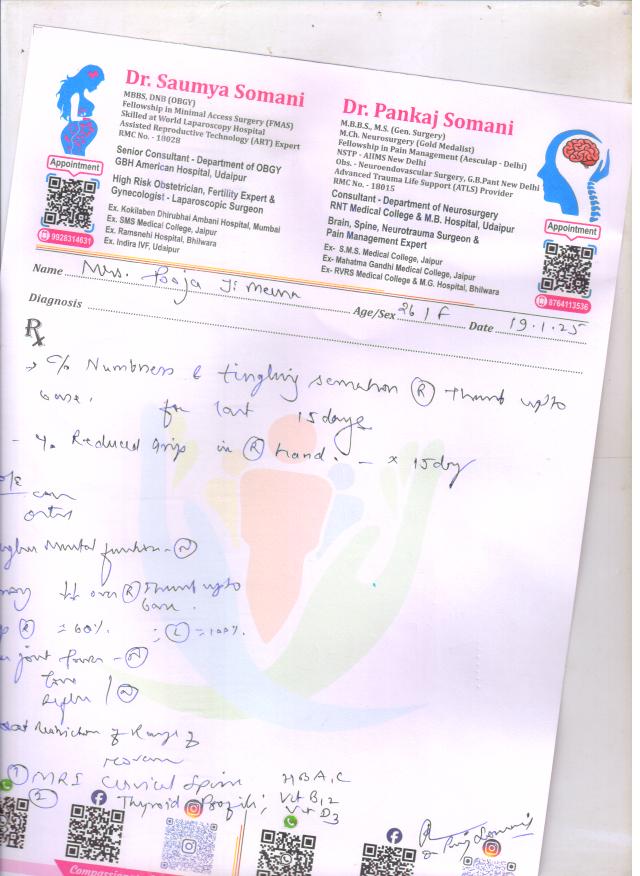 Dr. Saumya Somani
MBBS, DNB (OBGY)
Fellowship in Minimal Access Surgery (FMAS)
Skilled at World Laparoscopy Hospital
Assisted Reproductive Technology (ART) Expert
RMC No. - 18028
Senior Consultant - Department of OBGY
GBH American Hospital, Udaipur
High Risk Obstetrician, Fertility Expert &
Gynecologist - Laparoscopic Surgeon
Ex. Kokilaben Dhirubhai Ambani Hospital, Mumbai
Ex. SMS Medical College, Jaipur
Ex. Ramsnehi Hospital, Bhilwara
Ex. Indira IVF, Udaipur
Appointment
9928314631
Dr. Pankaj Somani
M.B.B.S., M.S. (Gen. Surgery)
M.Ch. Neurosurgery (Gold Medalist)
Fellowship in Pain Management (Aesculap - Delhi)
NSTP - AIIMS New Delhi
Obs. - Neuroendovascular Surgery, G.B.Pant New Delhi
Advanced Trauma Life Support (ATLS) Provider
RMC No. - 18015
Consultant - Department of Neurosurgery
RNT Medical College & M.B. Hospital, Udaipur
Brain, Spine, Neurotrauma Surgeon &
Pain Management Expert
Ex- S.M.S. Medical College, Jaipur
Ex- Mahatma Gandhi Medical College, Jaipur
Ex- RVRS Medical College & M.G. Hospital, Bhilwara
Appointment
8764113536
Name Mrs. Pooja Ji Meena
Age/Sex 26 / F Date 19.1.25
Diagnosis
Rx
C/o Numbness & tingling sensation (R) Thumb upto
base. for last 15 days
Reduced grip in (R) hand. - x 15 day
O/E
mental function - (N)
↓↓ over (R) Thumb upto
base.
(R) = 60% ; (L) = 100%
joint power - (N)
Tone
(N)
restriction of Range of
(1) MRI Cervical Spine HBA1C
(2) Thyroid Profile; Vit B12
Vit D3